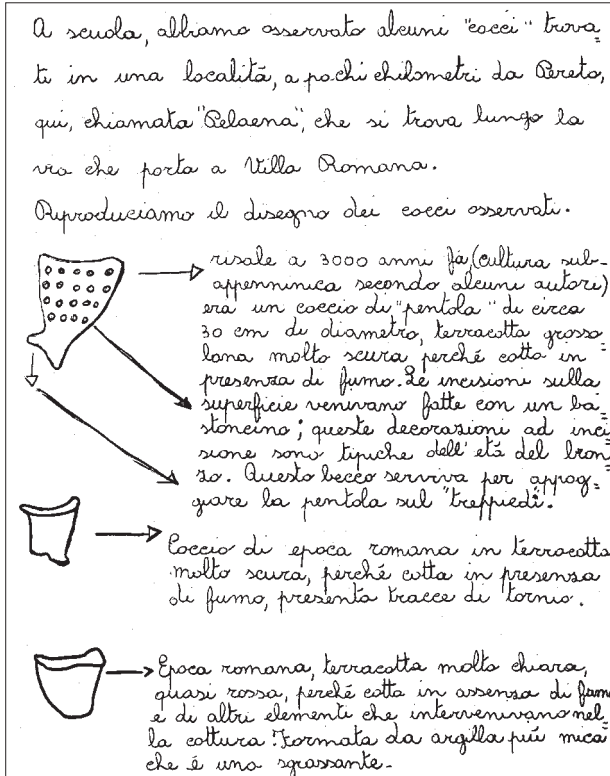 A scuola, abbiamo osservato alcuni "cocci" trova=
ti in una località, a pochi chilometri da Pereto,
qui, chiamata "Pelaena", che si trova lungo la
via che porta a Villa Romana.
Riproduciamo il disegno dei cocci osservati.
risale a 3000 anni fà, (cultura sub-
appenninica secondo alcuni autori)
era un coccio di "pentola" di circa
30 cm di diametro, terracotta grosso
lana molto scura perché cotta in
presenza di fumo. Le incisioni sulla
superficie venivano fatte con un ba=
stoncino; queste decorazioni ad inci=
sione sono tipiche dell'età del bron=
zo. Questo becco serviva per appog=
giare la pentola sul "treppiedi".
Coccio di epoca romana in terracotta
molto scura, perché cotta in presenza
di fumo, presenta tracce di tornio.
Epoca romana, terracotta molto chiara,
quasi rossa, perché cotta in assenza di fumo
e di altri elementi che intervenivano nel=
la cottura. Formata da argilla più mica
che é uno sgrassante.